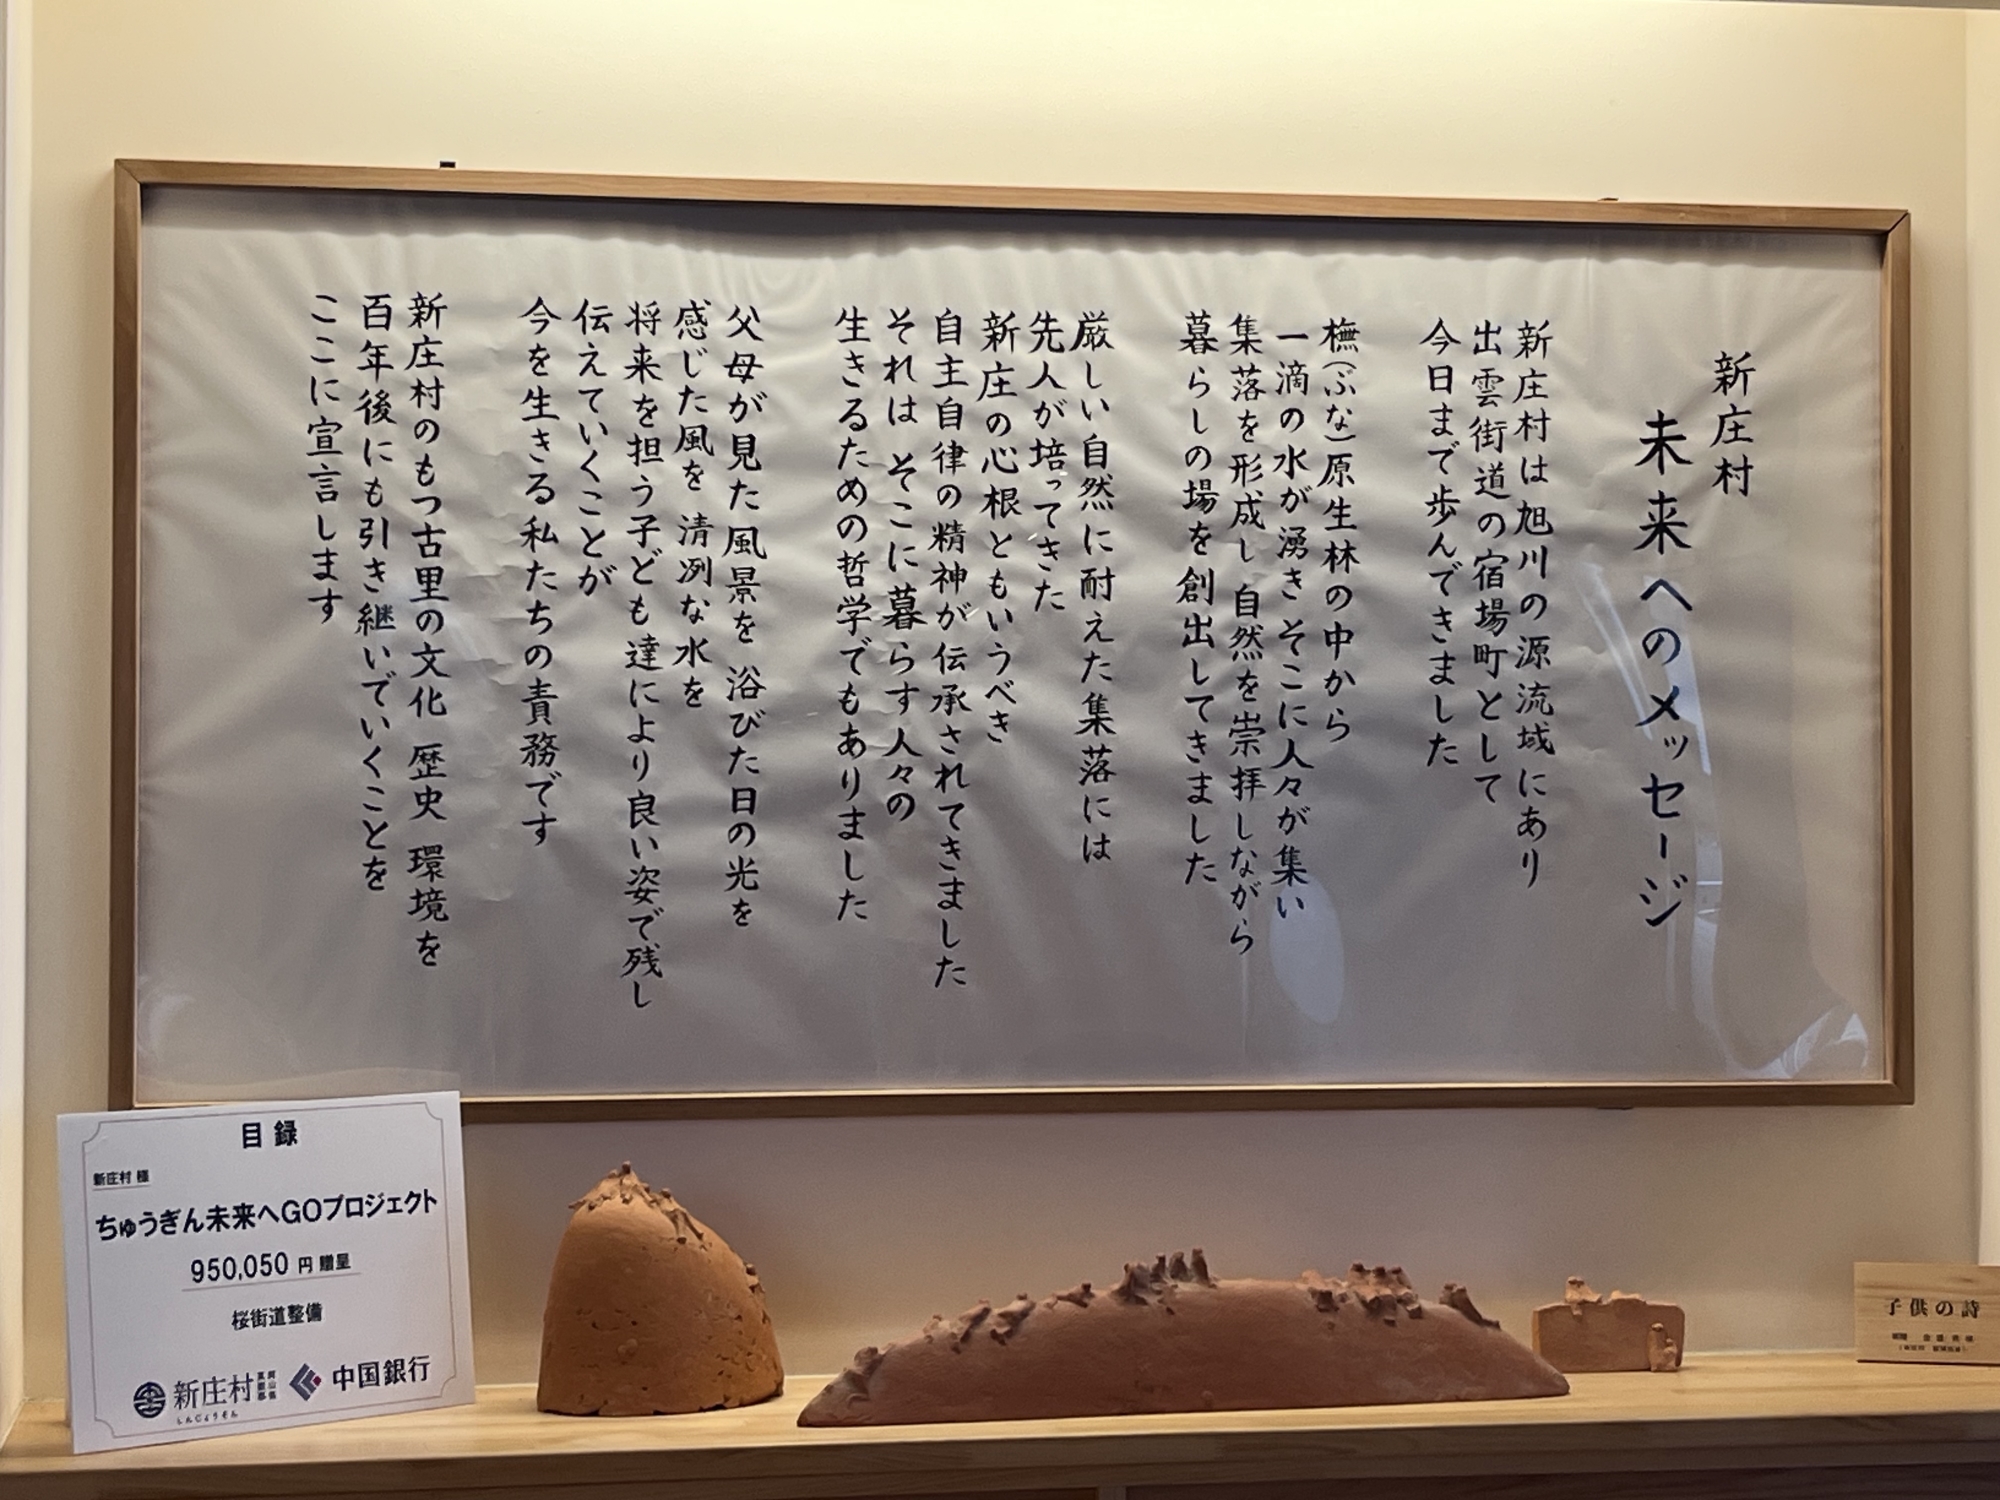 新庄村
未来へのメッセージ
新庄村は旭川の源流域にあり
出雲街道の宿場町として
今日まで歩んできました
橅(ぶな)原生林の中から
一滴の水が湧き そこに人々が集い
集落を形成し 自然を崇拝しながら
暮らしの場を創出してきました
厳しい自然に耐えた集落には
先人が培ってきた
新庄の心根ともいうべき
自主自律の精神が伝承されてきました
それは そこに暮らす人々の
生きるための哲学でもありました
父母が見た風景を 浴びた日の光を
感じた風を 清冽な水を
将来を担う子ども達により良い姿で残し
伝えていくことが
今を生きる私たちの責務です
新庄村のもつ古里の文化 歴史 環境を
百年後にも引き継いでいくことを
ここに宣言します
目録
新庄村 様
ちゅうぎん未来へGOプロジェクト
950,050 円 贈呈
桜街道整備
新庄村
しんじょうそん
中国銀行
子供の詩